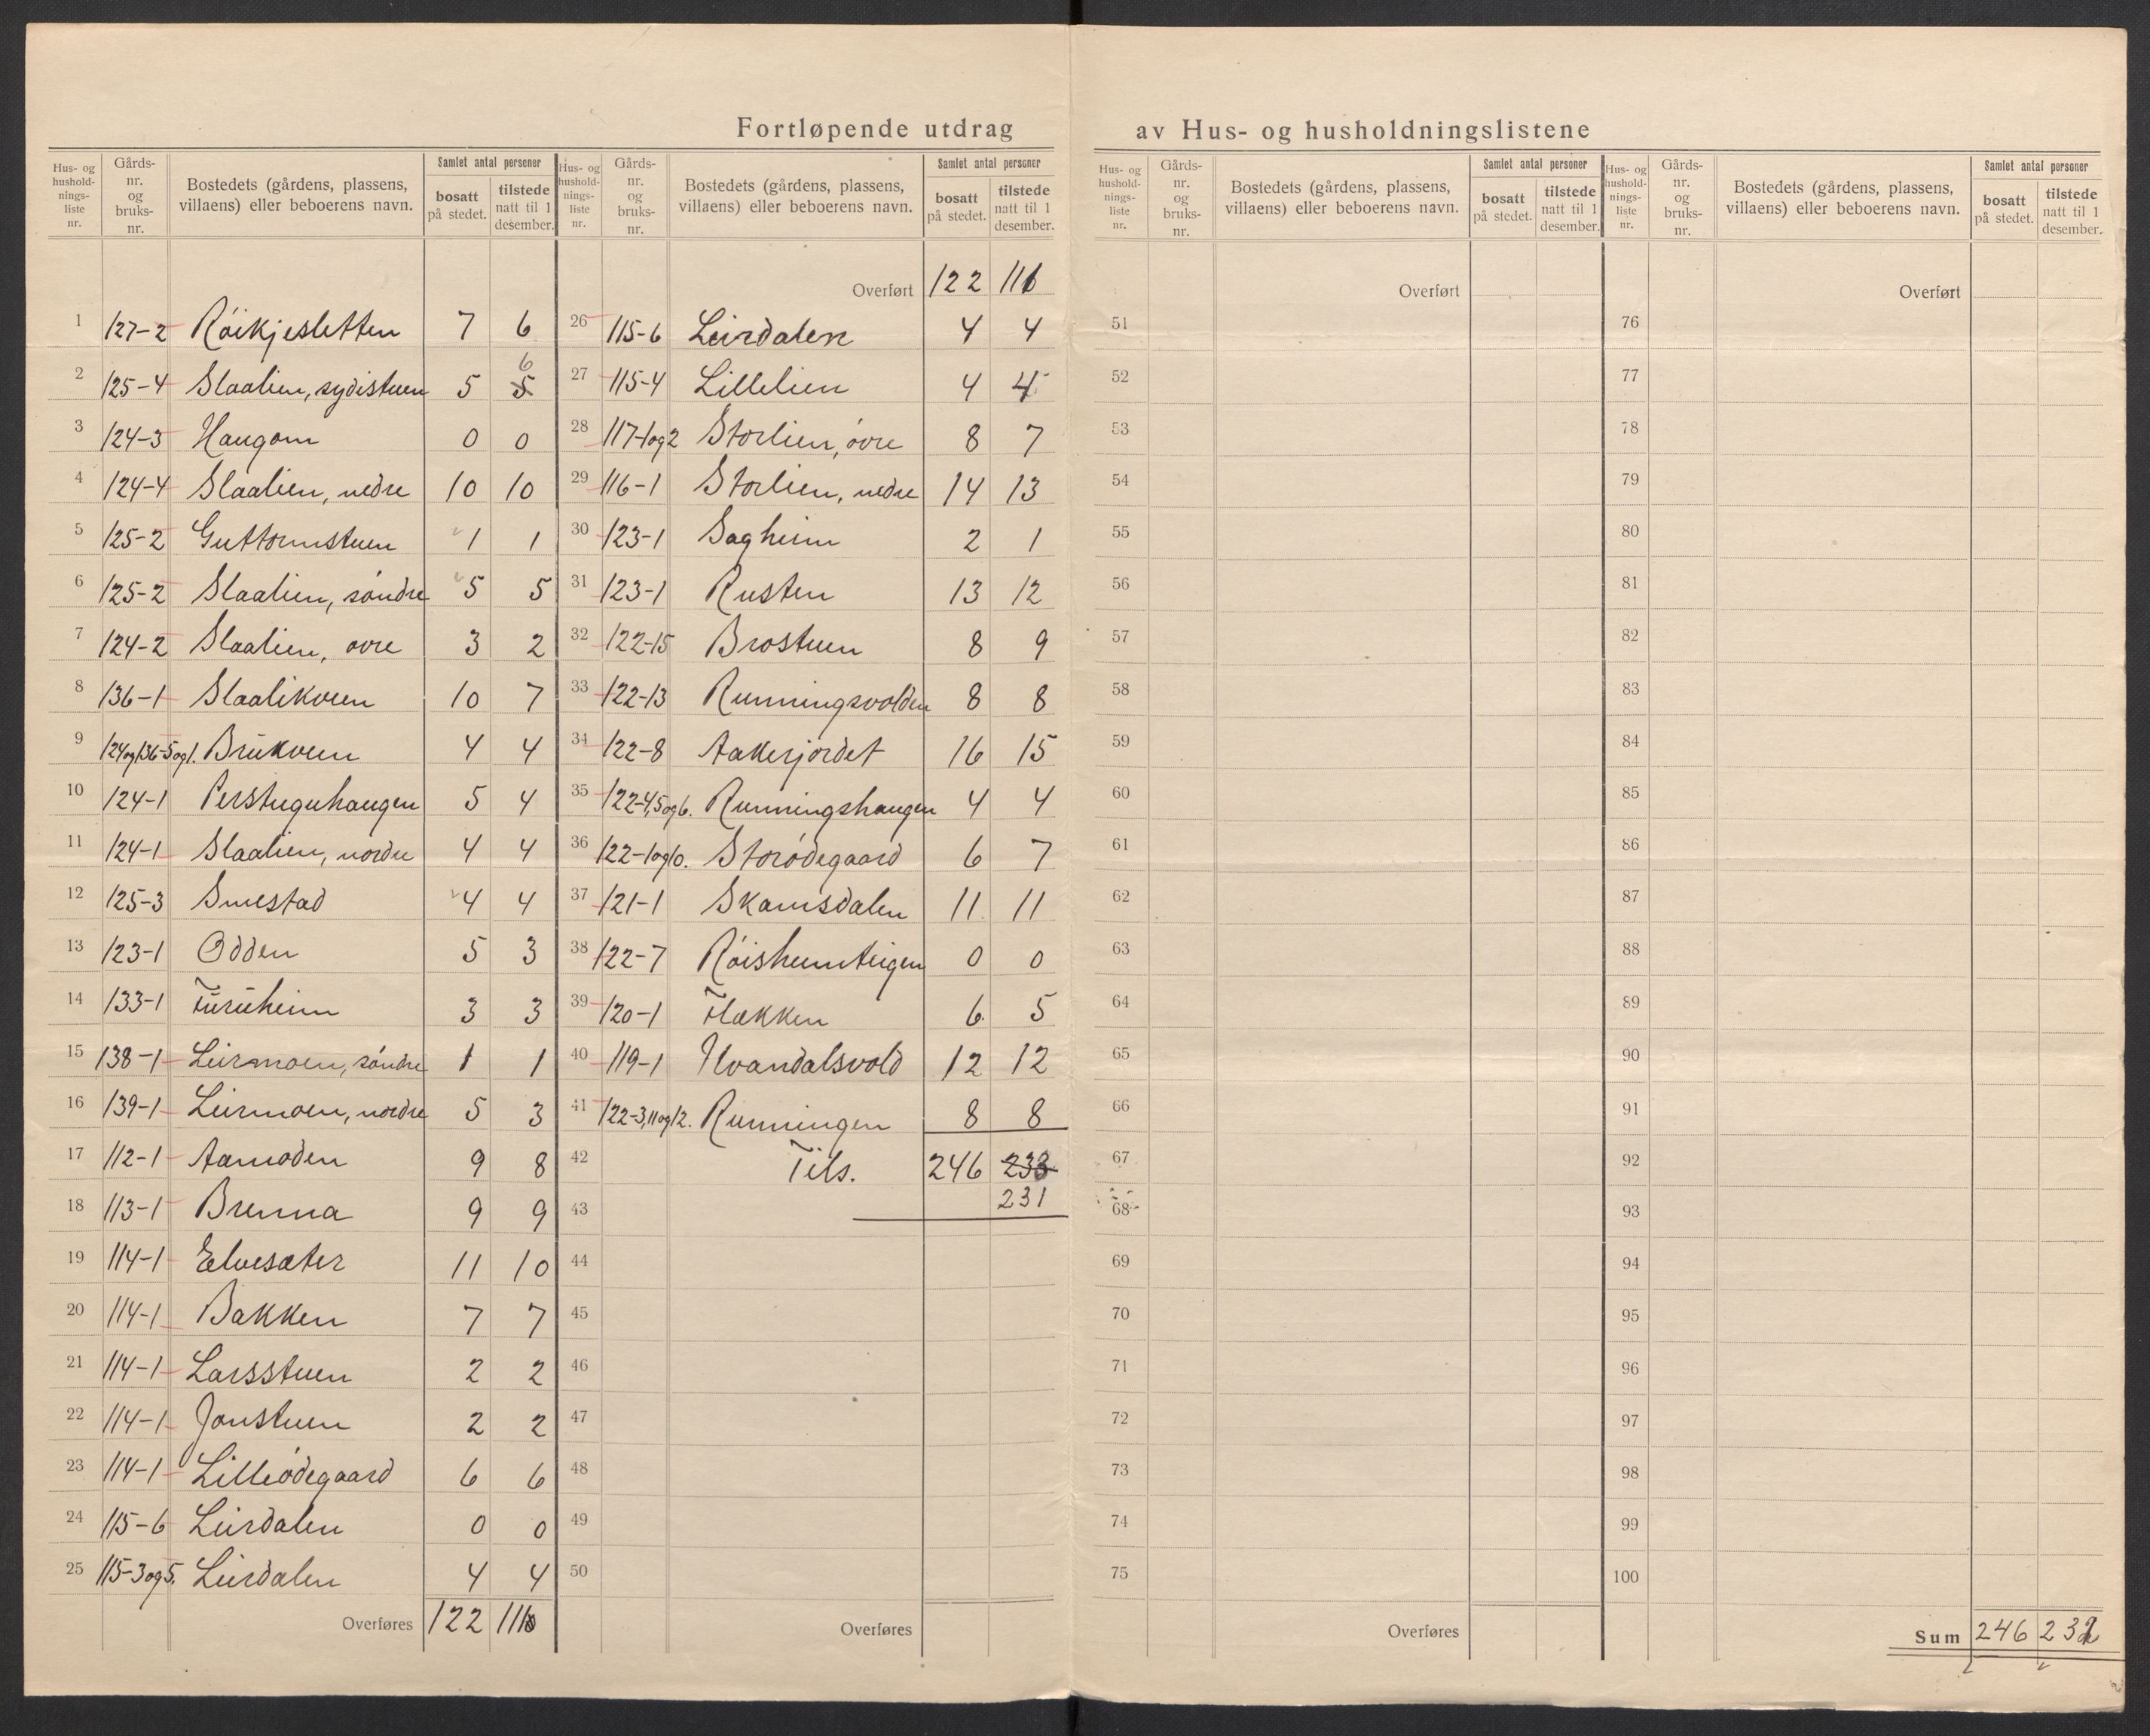 Fortløpende utdrag av Hus- og husholdningslistene
Hus- og hushold- nings- liste nr. | Gårds- nr. og bruks- nr. | Bostedets (gårdens, plassens, villaens) eller beboerens navn. | Samlet antal personer | bosatt på stedet. | tilstede natt til 1 desember.
1 127-2 Røikjesletten 7 6
2 125-4 Slaalien, sydistuen 5 5 6
3 124-3 Haugom 0 0
4 124-4 Slaalien, nedre 10 10
5 125-2 Guttormstuen 1 1
6 125-2 Slaalien, søndre 5 5
7 124-2 Slaalien, øvre 3 2
8 136-1 Slaalikveen 10 7
9 124og136-5og1. Brukveen 4 4
10 124-1 Perstuguhaugen 5 4
11 124-1 Slaalien, nordre 4 4
12 125-3 Smestad 4 4
13 123-1 Odden 5 3
14 133-1 Furuheim 3 3
15 138-1 Leirmoen, søndre 1 1
16 139-1 Leirmoen, nordre 5 3
17 112-1 Aamoden 9 8
18 113-1 Brenna 9 9
19 114-1 Elvesæter 11 10
20 114-1 Bakken 7 7
21 114-1 Larsstuen 2 2
22 114-1 Jonstuen 2 2
23 114-1 Lilleødegaard 6 6
24 115-6 Leirdalen 0 0
25 115-3og5. Leirdalen 4 4
Overføres 122 116
Hus- og hushold- nings- liste nr. | Gårds- nr. og bruks- nr. | Bostedets (gårdens, plassens, villaens) eller beboerens navn. | Samlet antal personer | bosatt på stedet. | tilstede natt til 1 desember.
Overført 122 116
26 115-6 Leirdalen 4 4
27 115-4 Lillelien 4 4
28 117-1og2 Storlien, øvre 8 7
29 116-1 Storlien, nedre 14 13
30 123-1 Sagheim 2 1
31 123-1 Rusten 13 12
32 122-15 Brostuen 8 9
33 122-13 Runningsvolden 8 8
34 122-8 Aakerjordet 16 15
35 122-4,5og6. Runningshaugen 4 4
36 122-1og10. Storødegaard 6 7
37 121-1 Skamsdalen 11 11
38 122-7 Røisheimteigen 0 0
39 120-1 Flækken 6 5
40 119-1 Ilvandalsvold 12 12
41 122-3,11og12. Runningen 8 8
42 Tils. 246 233
43 231
44
45
46
47
48
49
50
Overføres
Hus- og hushold- nings- liste nr. | Gårds- nr. og bruks- nr. | Bostedets (gårdens, plassens, villaens) eller beboerens navn. | Samlet antal personer | bosatt på stedet. | tilstede natt til 1 desember.
Overført
51
52
53
54
55
56
57
58
59
60
61
62
63
64
65
66
67
68
69
70
71
72
73
74
75
Overføres
Hus- og hushold- nings- liste nr. | Gårds- nr. og bruks- nr. | Bostedets (gårdens, plassens, villaens) eller beboerens navn. | Samlet antal personer | bosatt på stedet. | tilstede natt til 1 desember.
Overført
76
77
78
79
80
81
82
83
84
85
86
87
88
89
90
91
92
93
94
95
96
97
98
99
100
Sum 246 231